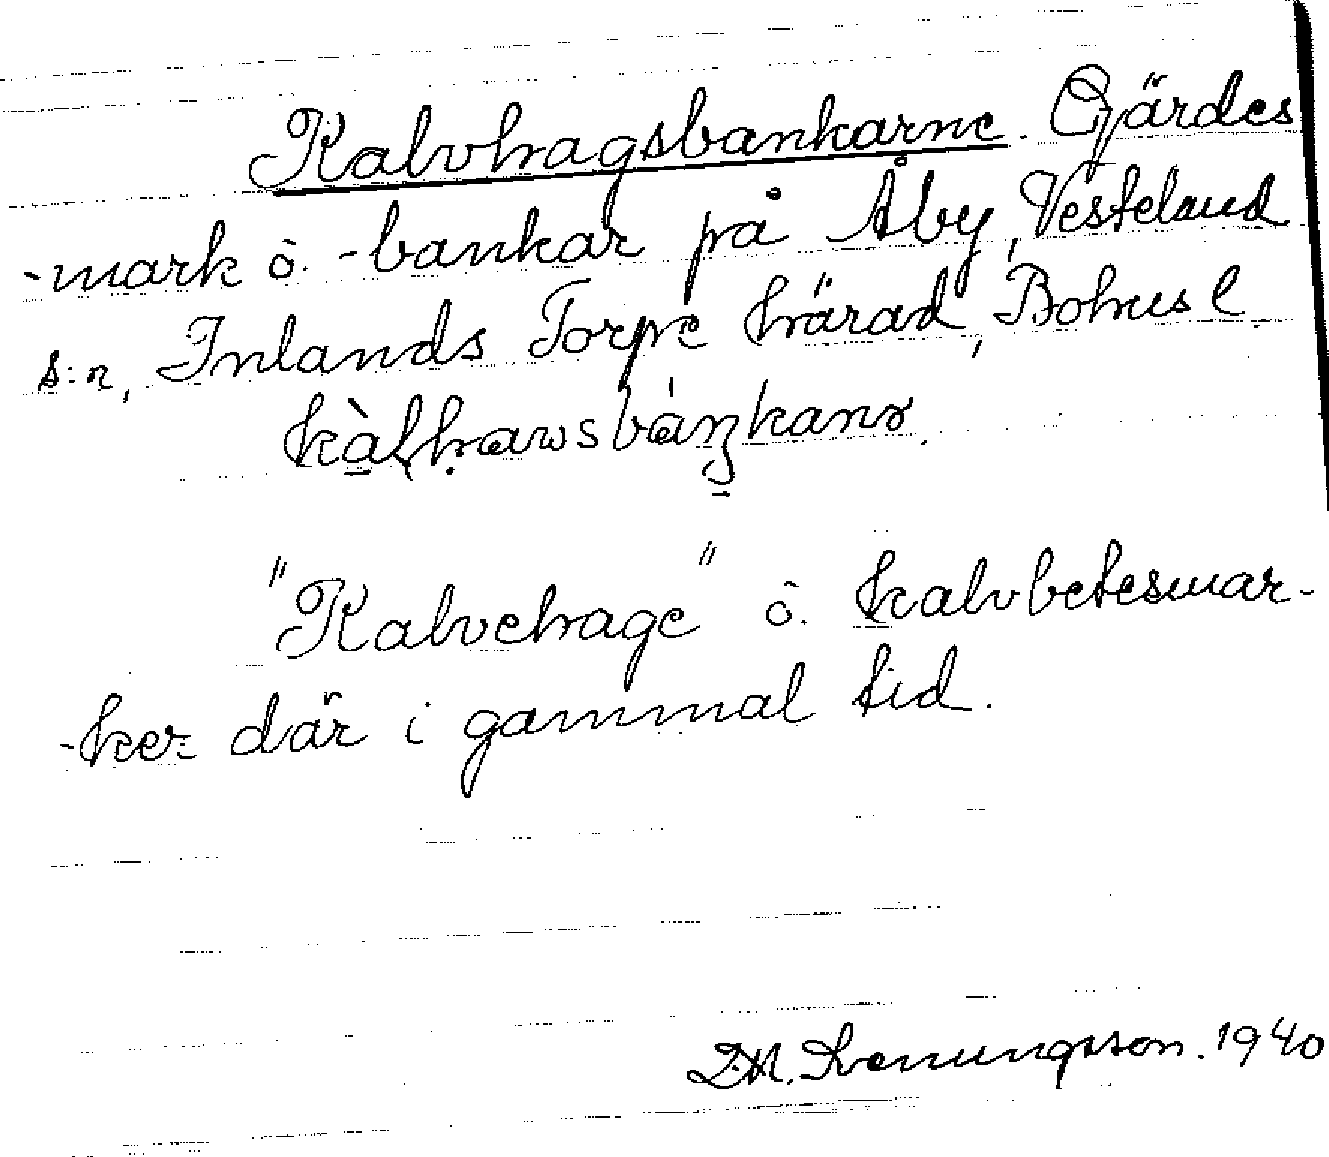 Kalvhagsbankarne. Gärdes
-mark o. -bankar på Åby, Vesteland
s:n, Inlands Torpe härad, Bohusl
"Kalvehage" o. kalvbetesmar-
-ker där i gammal tid.
1940